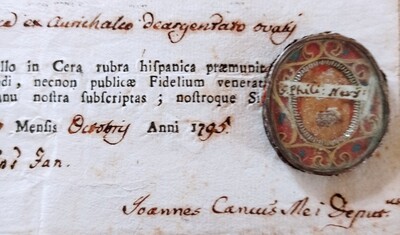 ex Aurichalco deargentato ovatj
llo in Cera rubra hispanica præmunit
di, necnon publicæ Fidelium venerati
nu nostra subscriptas; nostroque Si
S. Phili: Nerij:
Mensis Octobris Anni 1795.
Jan.
Joannes Cancus Mei Deput.us